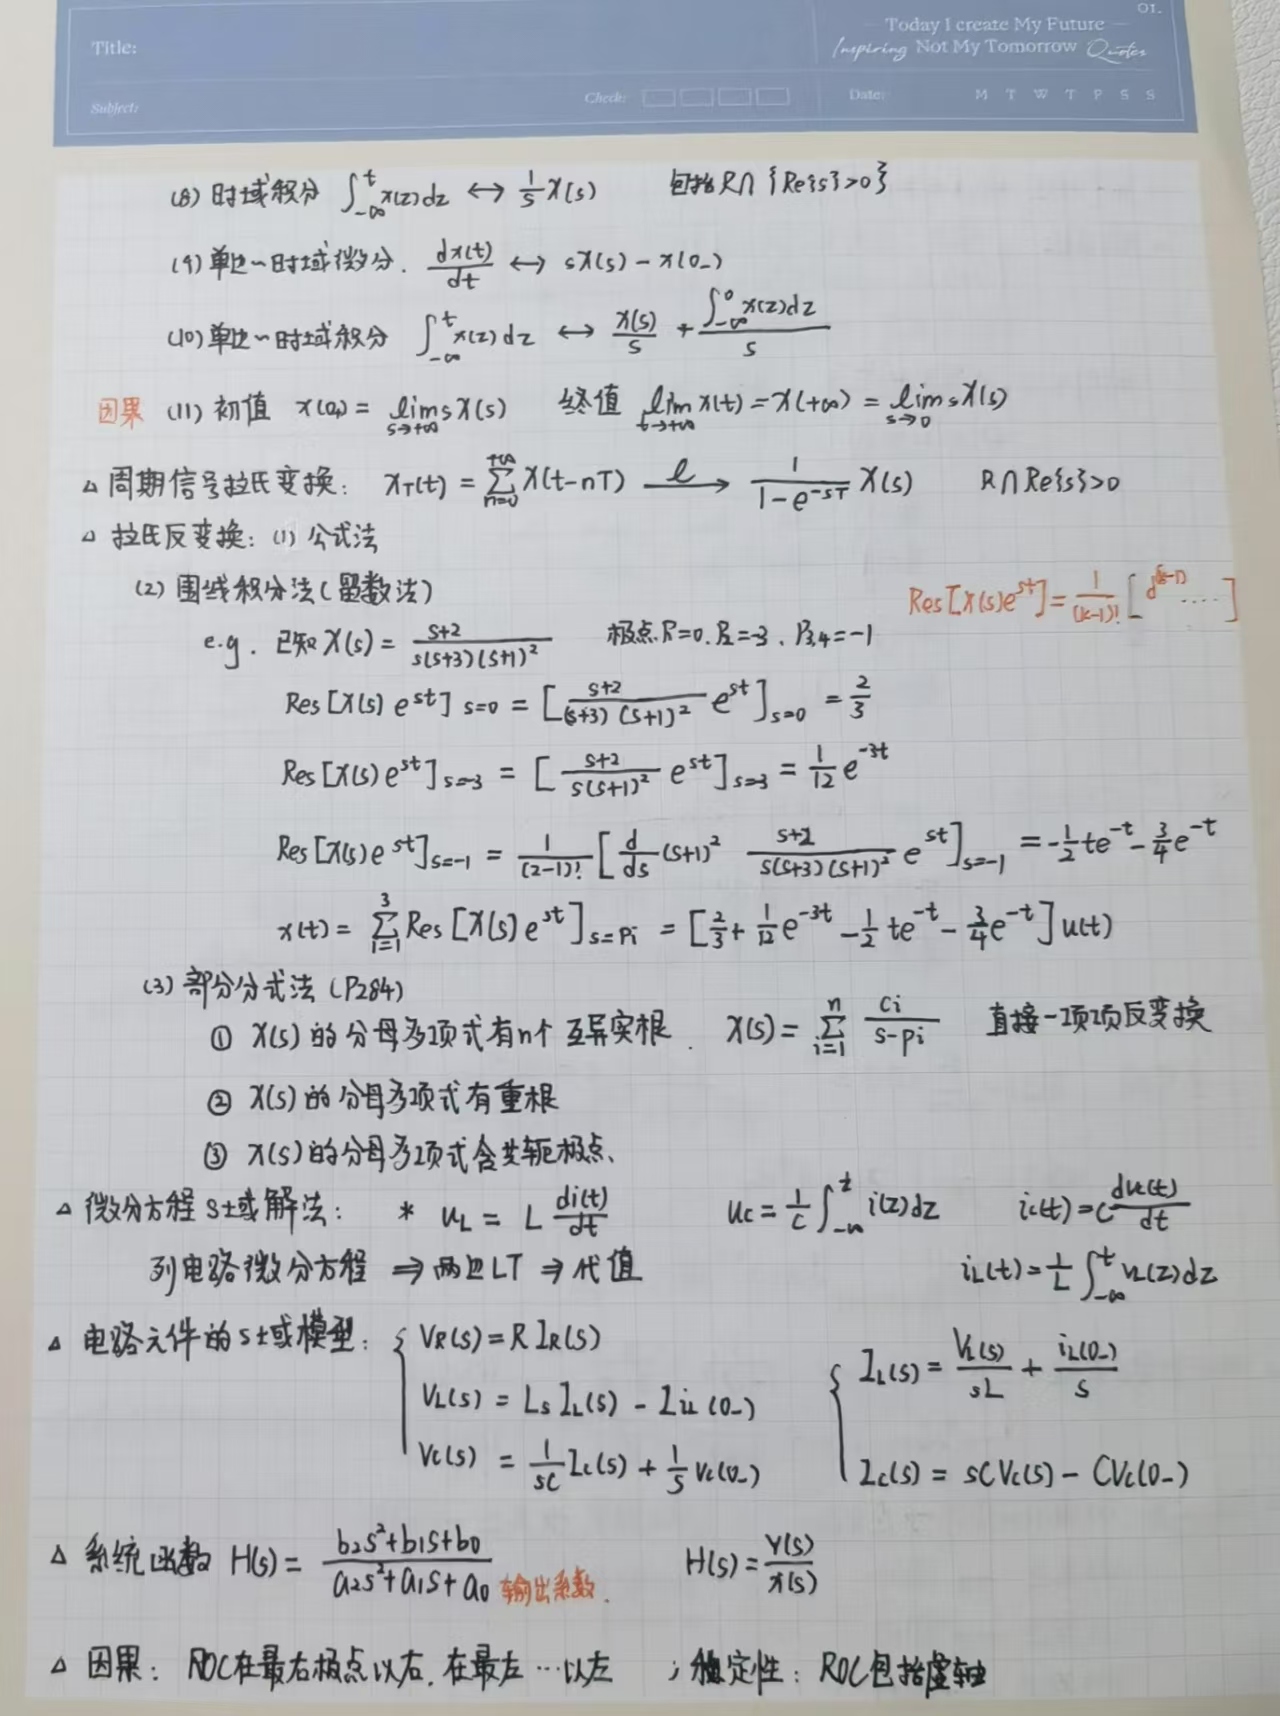 01.
Title:
Today I create My Future
Inspiring Not My Tomorrow Quotes
Subject:
Check:
Date: M T W T F S S
(8) 时域积分 ∫_{-∞}^{t} x(τ)dτ ↔ 1/s X(s) 包括R∩{Re{s}>0}
(9) 单边~时域微分. dx(t)/dt ↔ sX(s) - x(0_-)
(10) 单边~时域积分 ∫_{-∞}^{t} x(τ)dτ ↔ X(s)/s + ∫_{-∞}^{0} x(τ)dτ / s
因果 (11) 初值 x(0+) = lim_{s→+∞} sX(s) 终值 lim_{t→+∞} x(t) = x(+∞) = lim_{s→0} sX(s)
△ 周期信号拉氏变换: x_T(t) = Σ_{n=0}^{+∞} x(t-nT) —ℓ→ 1/(1-e^{-sT}) X(s) R∩Re{s}>0
△ 拉氏反变换: (1) 公式法
(2) 围线积分法(留数法)
Res[X(s)e^{st}] = 1/(k-1)! [d^{(k-1)} ....]
e.g. 已知 X(s) = (s+2)/(s(s+3)(s+1)²) 极点 P_1=0. P_2=-3. P_{3,4}=-1
Res[X(s)e^{st}]_{s=0} = [(s+2)/((s+3)(s+1)²) e^{st}]_{s=0} = 2/3
Res[X(s)e^{st}]_{s=-3} = [(s+2)/(s(s+1)²) e^{st}]_{s=-3} = 1/12 e^{-3t}
Res[X(s)e^{st}]_{s=-1} = 1/(2-1)! [d/ds (s+1)² (s+2)/(s(s+3)(s+1)²) e^{st}]_{s=-1} = -1/2 te^{-t} - 3/4 e^{-t}
x(t) = Σ_{i=1}^{3} Res[X(s)e^{st}]_{s=p_i} = [2/3 + 1/12 e^{-3t} - 1/2 te^{-t} - 3/4 e^{-t}]u(t)
(3) 部分分式法 (P284)
① X(s)的分母多项式有n个互异实根. X(s) = Σ_{i=1}^{n} c_i/(s-p_i) 直接一项项反变换
② X(s)的分母多项式有重根
③ X(s)的分母多项式含共轭极点、
△ 微分方程S域解法: * u_L = L di(t)/dt u_C = 1/C ∫_{-∞}^{t} i(τ)dτ i_C(t) = C du_C(t)/dt
列电路微分方程 ⇒ 两边LT ⇒ 代值 i_L(t) = 1/L ∫_{-∞}^{t} v_L(τ)dτ
△ 电路元件的s域模型: { V_R(s) = R I_R(s)
V_L(s) = Ls I_L(s) - L i_L(0_-)
V_C(s) = 1/(sC) I_C(s) + 1/s v_C(0_-)
{ I_L(s) = V_L(s)/(sL) + i_L(0_-)/s
I_C(s) = sC V_C(s) - C v_C(0_-)
△ 系统函数 H(s) = (b_2s²+b_1s+b_0)/(a_2s²+a_1s+a_0) 输出系数. H(s) = Y(s)/X(s)
△ 因果: ROC在最右极点以右, 在最左…以左 ; 稳定性: ROC包括虚轴